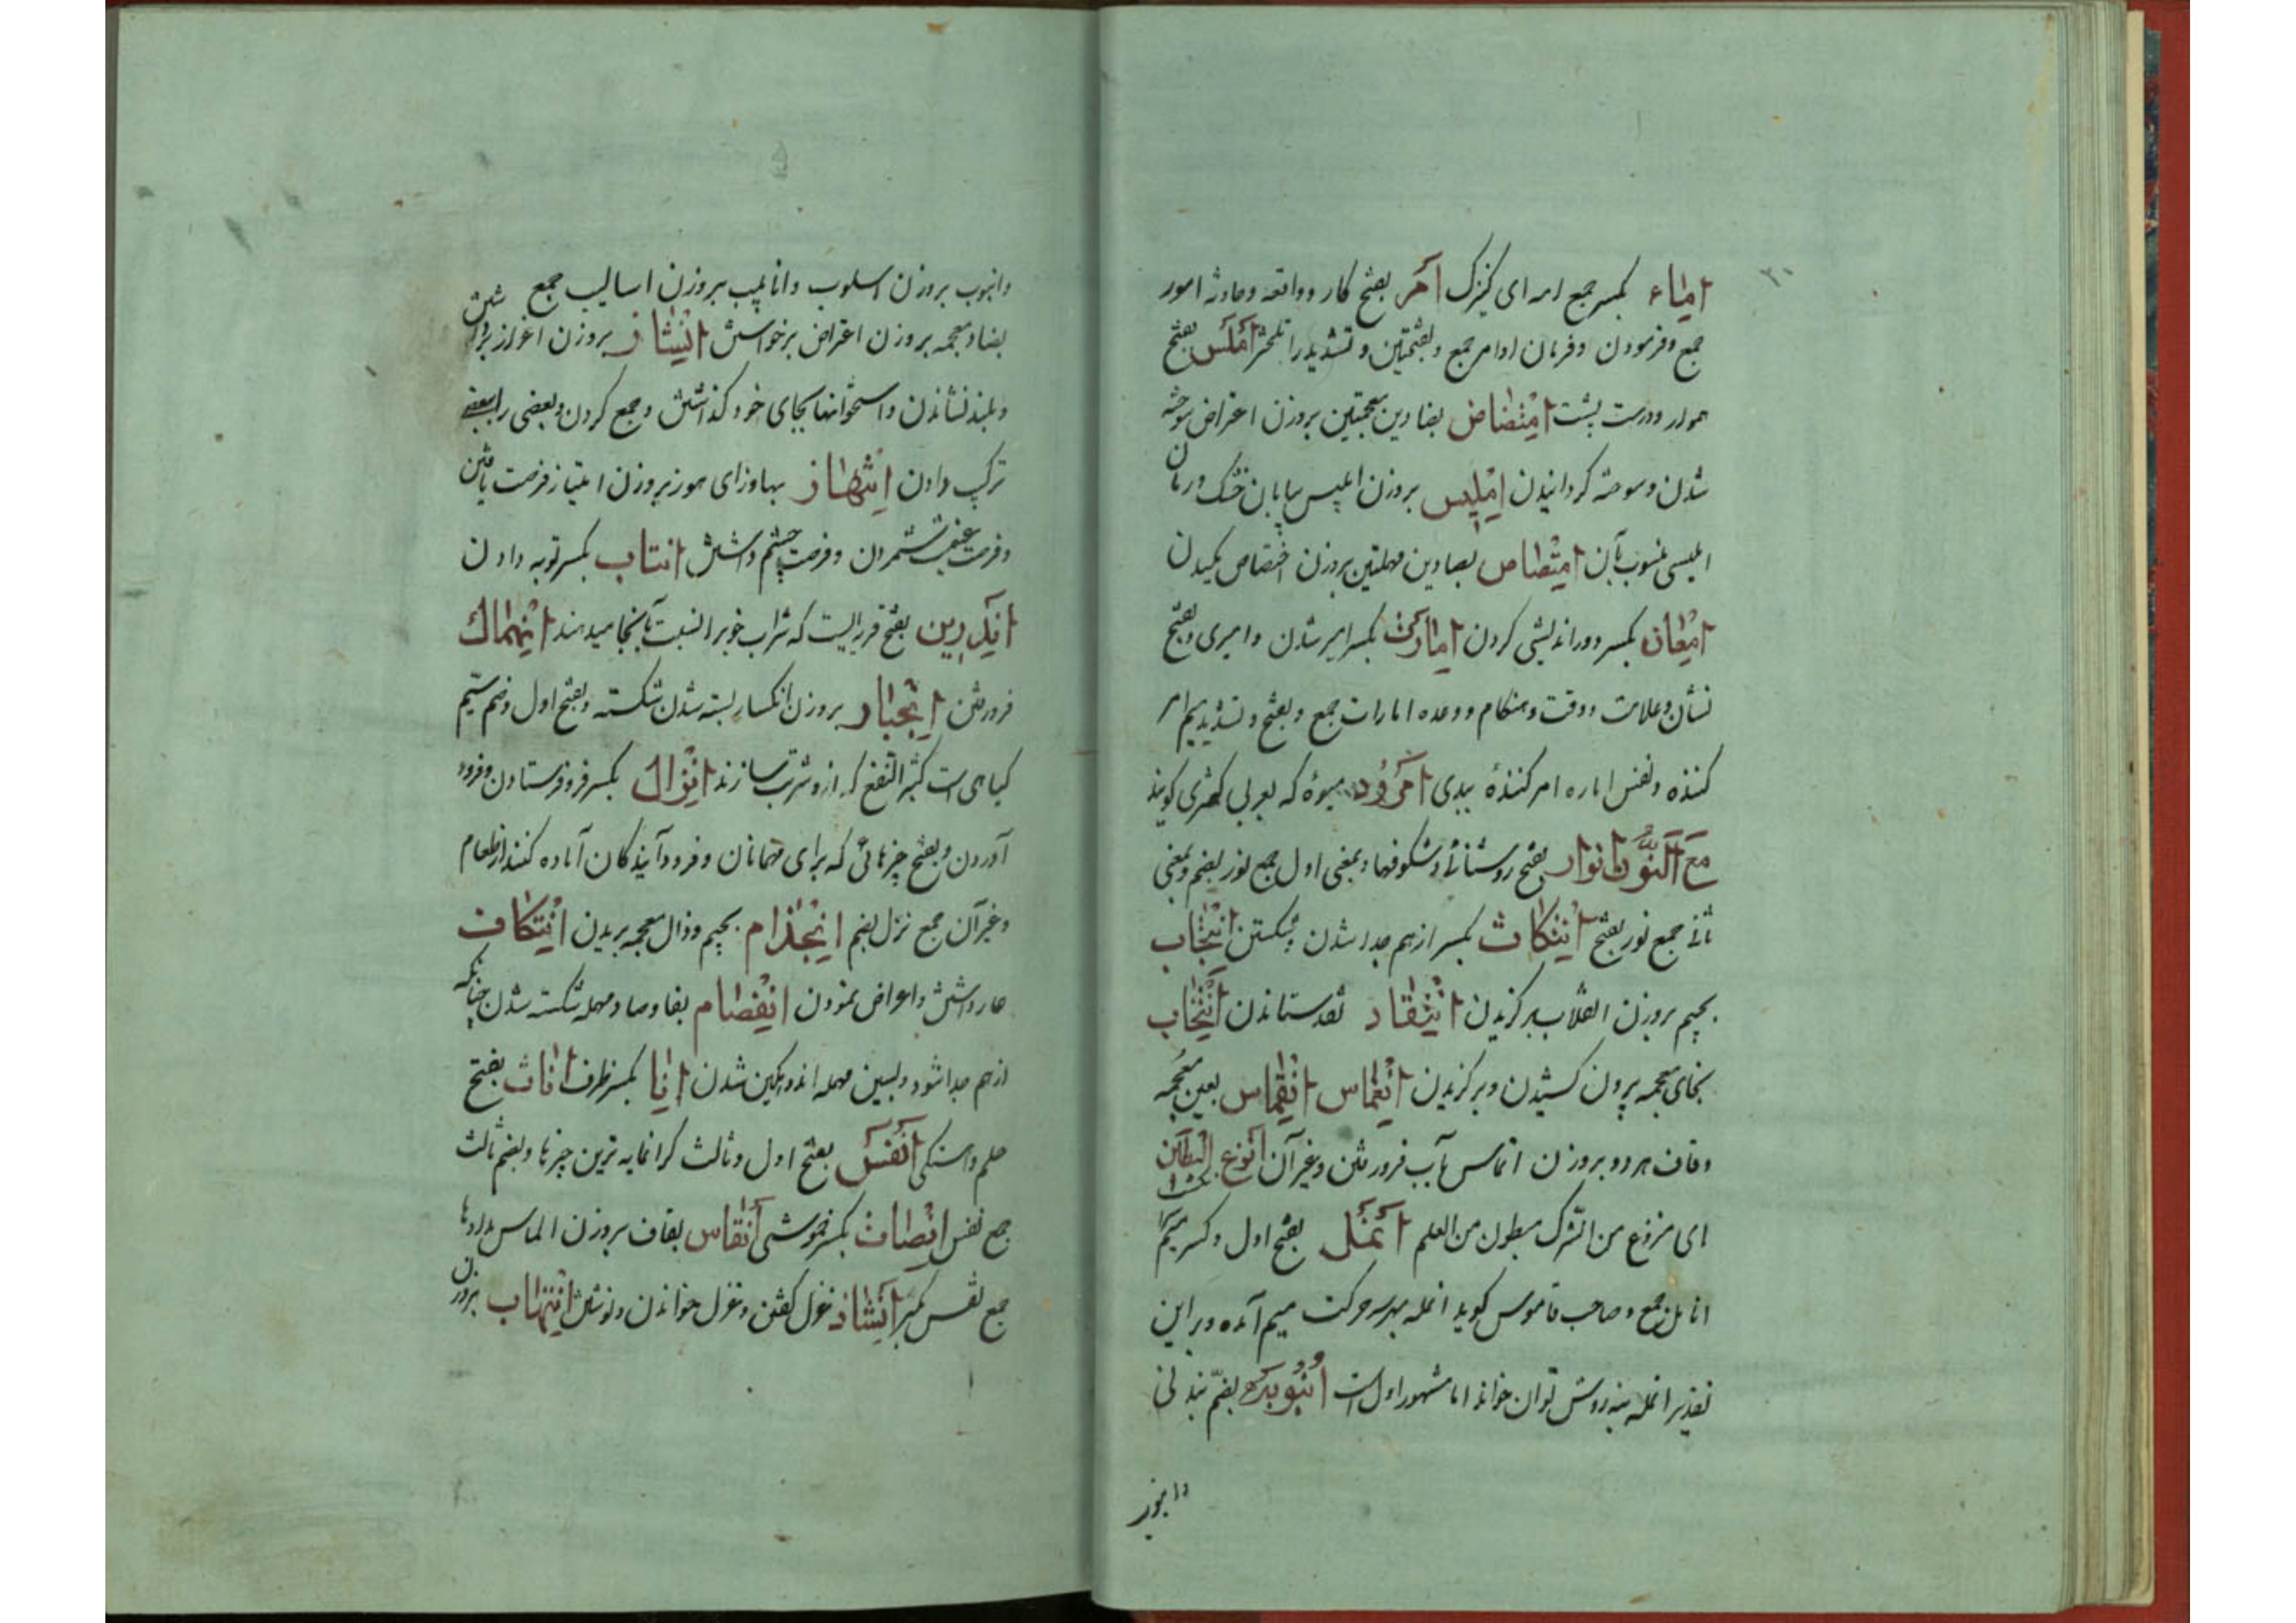 ۳۰
امآء بکسر جمع امه ای کنیزک امر بفتح کار و واقعه و حادثه امور
جمع و فرمودن و فرمان اوامر جمع و بفتحتین و تشدید را تلختر املس بفتح
هموار و درست پشت امتضاض بضادین معجمتین بروزن اعتراض سوخته
شدن و سوخته گردانیدن املیس بروزن ابلیس بیابان خشک و رمان
املیسی منسوب بآن امتصاص بصادین مهملتین بروزن اختصاص مکیدن
امعان بکسر دوراندیشی کردن امارت بکسر امیر شدن و امیری و بفتح
نشان و علامت و وقت و هنکام و وعده امارات جمع و بفتح و تشدید میم امر
کننده و نفس اماره امر کنندۀ ببدی امرود میوۀ که بعربی کمثری کویند
مع النون انوار بفتح روشنائی و شکوفها و بمعنی اول جمع نور بضم و بمعنی
ثانی جمع نور بفتح انتکاث بکسر از هم جدا شدن شکستن انتجاب
بجیم بروزن انقلاب برکزیدن انتقاد نقد ستاندن انتخاب
بخای معجمه بیرون کشیدن و برکزیدن انغماس انقماس بغین معجمه
و قاف هر دو بروزن التماس بآب فرو رفتن و غیر آن انزع البطین
ای منزوع من الشرک مبطون من العلم انمل بفتح اول و کسر میم
انامل جمع و صاحب قاموس کوید انمله بهر سه حرکت میم آمده و بر این
تقدیر انمله بنه روش توان خواند اما مشهور اول است انبوبه بضم بند نی
وانبوب
وانبوب بروزن اسلوب و انابیب بروزن اسالیب جمع
بضاد معجمه بروزن اعتراض برخواستن انشاز بروزن اعزاز برداشتن
و بلند نشاندن و استخوانها بجای خود گذاشتن و جمع کردن و بعضی را ببعضی
ترکیب دادن انتهاز بها و زای هوز بروزن امتیاز فرصت یافتن
و فرصت غنیمت شمردن و فرصت چشم داشتن انتاب بکسر توبه دادن
اندرین بفتح قریه ایست که شراب خوب را نسبت بآنجا میدهند انهماک
فرو رفتن انجبار بروزن انکسار بسته شدن شکسته و بفتح اول و ضم سیم
کیاهی است کثیر النفع که ازو شربت سازند انزال بکسر فرو فرستادن و فرود
آوردن و بفتح چیزهائی که برای مهمانان و فرود آیندکان آماده کنند از طعام
و غیر آن جمع نزل بضم انجذام بجیم و ذال معجمه بریدن انتکاف
عار داشتن و اعراض نمودن انفصام بفا و صاد مهمله شکسته شدن چنانکه
از هم جدا شود و بسین مهمله اندوهکین شدن انا بکسر ظرف انات بفتح
حلم و آهستکی انفس بفتح اول و ثالث کرانمایه ترین چیزها و بضم ثالث
جمع نفس انصات بکسر خموشی انقاس بقاف بروزن الماس مدادها
جمع نقس بکسر انشاد غزل کفتن و غزل خواندن و نوشتن انتهاب بروزن